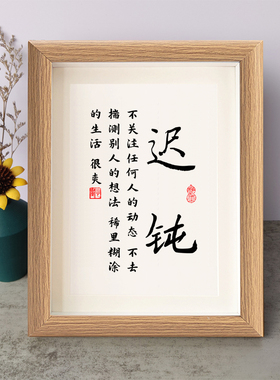 迟钝
不关注任何人的动态 不去
揣测别人的想法 稀里糊涂
的生活 很爽